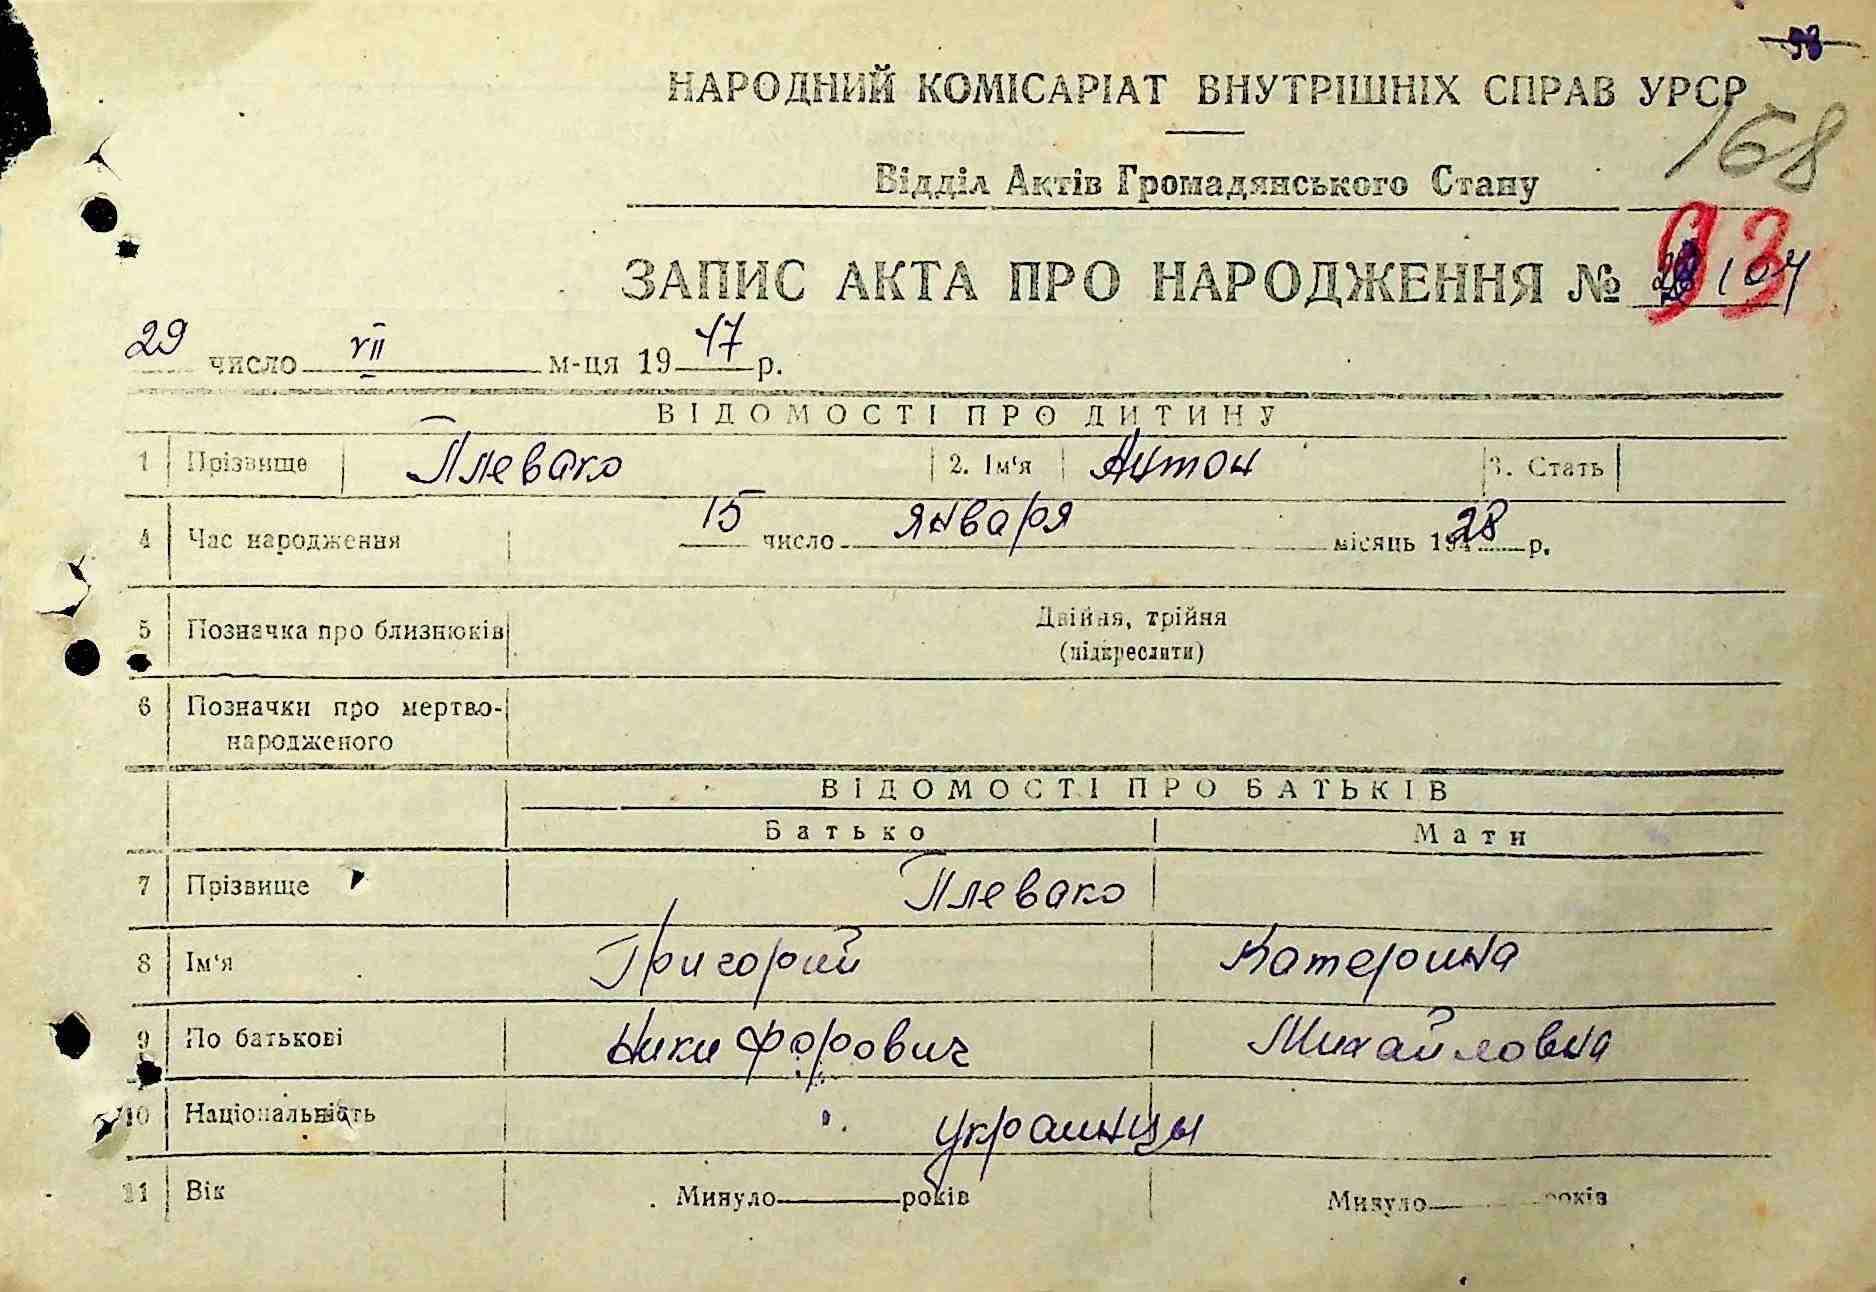 98
НАРОДНИЙ КОМІСАРІАТ ВНУТРІШНІХ СПРАВ УРСР
168
Відділ Актів Громадянського Стану
93
ЗАПИС АКТА ПРО НАРОДЖЕННЯ № 104
29 число VII м-ця 1947 р.
ВІДОМОСТІ ПРО ДИТИНУ
1 Прізвище Плевако 2. Ім'я Антон 3. Стать
4 Час народження 15 число января місяць 1928 р.
5 Позначка про близнюків Двійня, трійня
(підкреслити)
6 Позначки про мертво-
народженого
ВІДОМОСТІ ПРО БАТЬКІВ
Батько Мати
7 Прізвище Плевако
8 Ім'я Григорий Катерина
9 По батькові Никифорович Михайловна
10 Національність украинцы
11 Вік Минуло років Минуло років